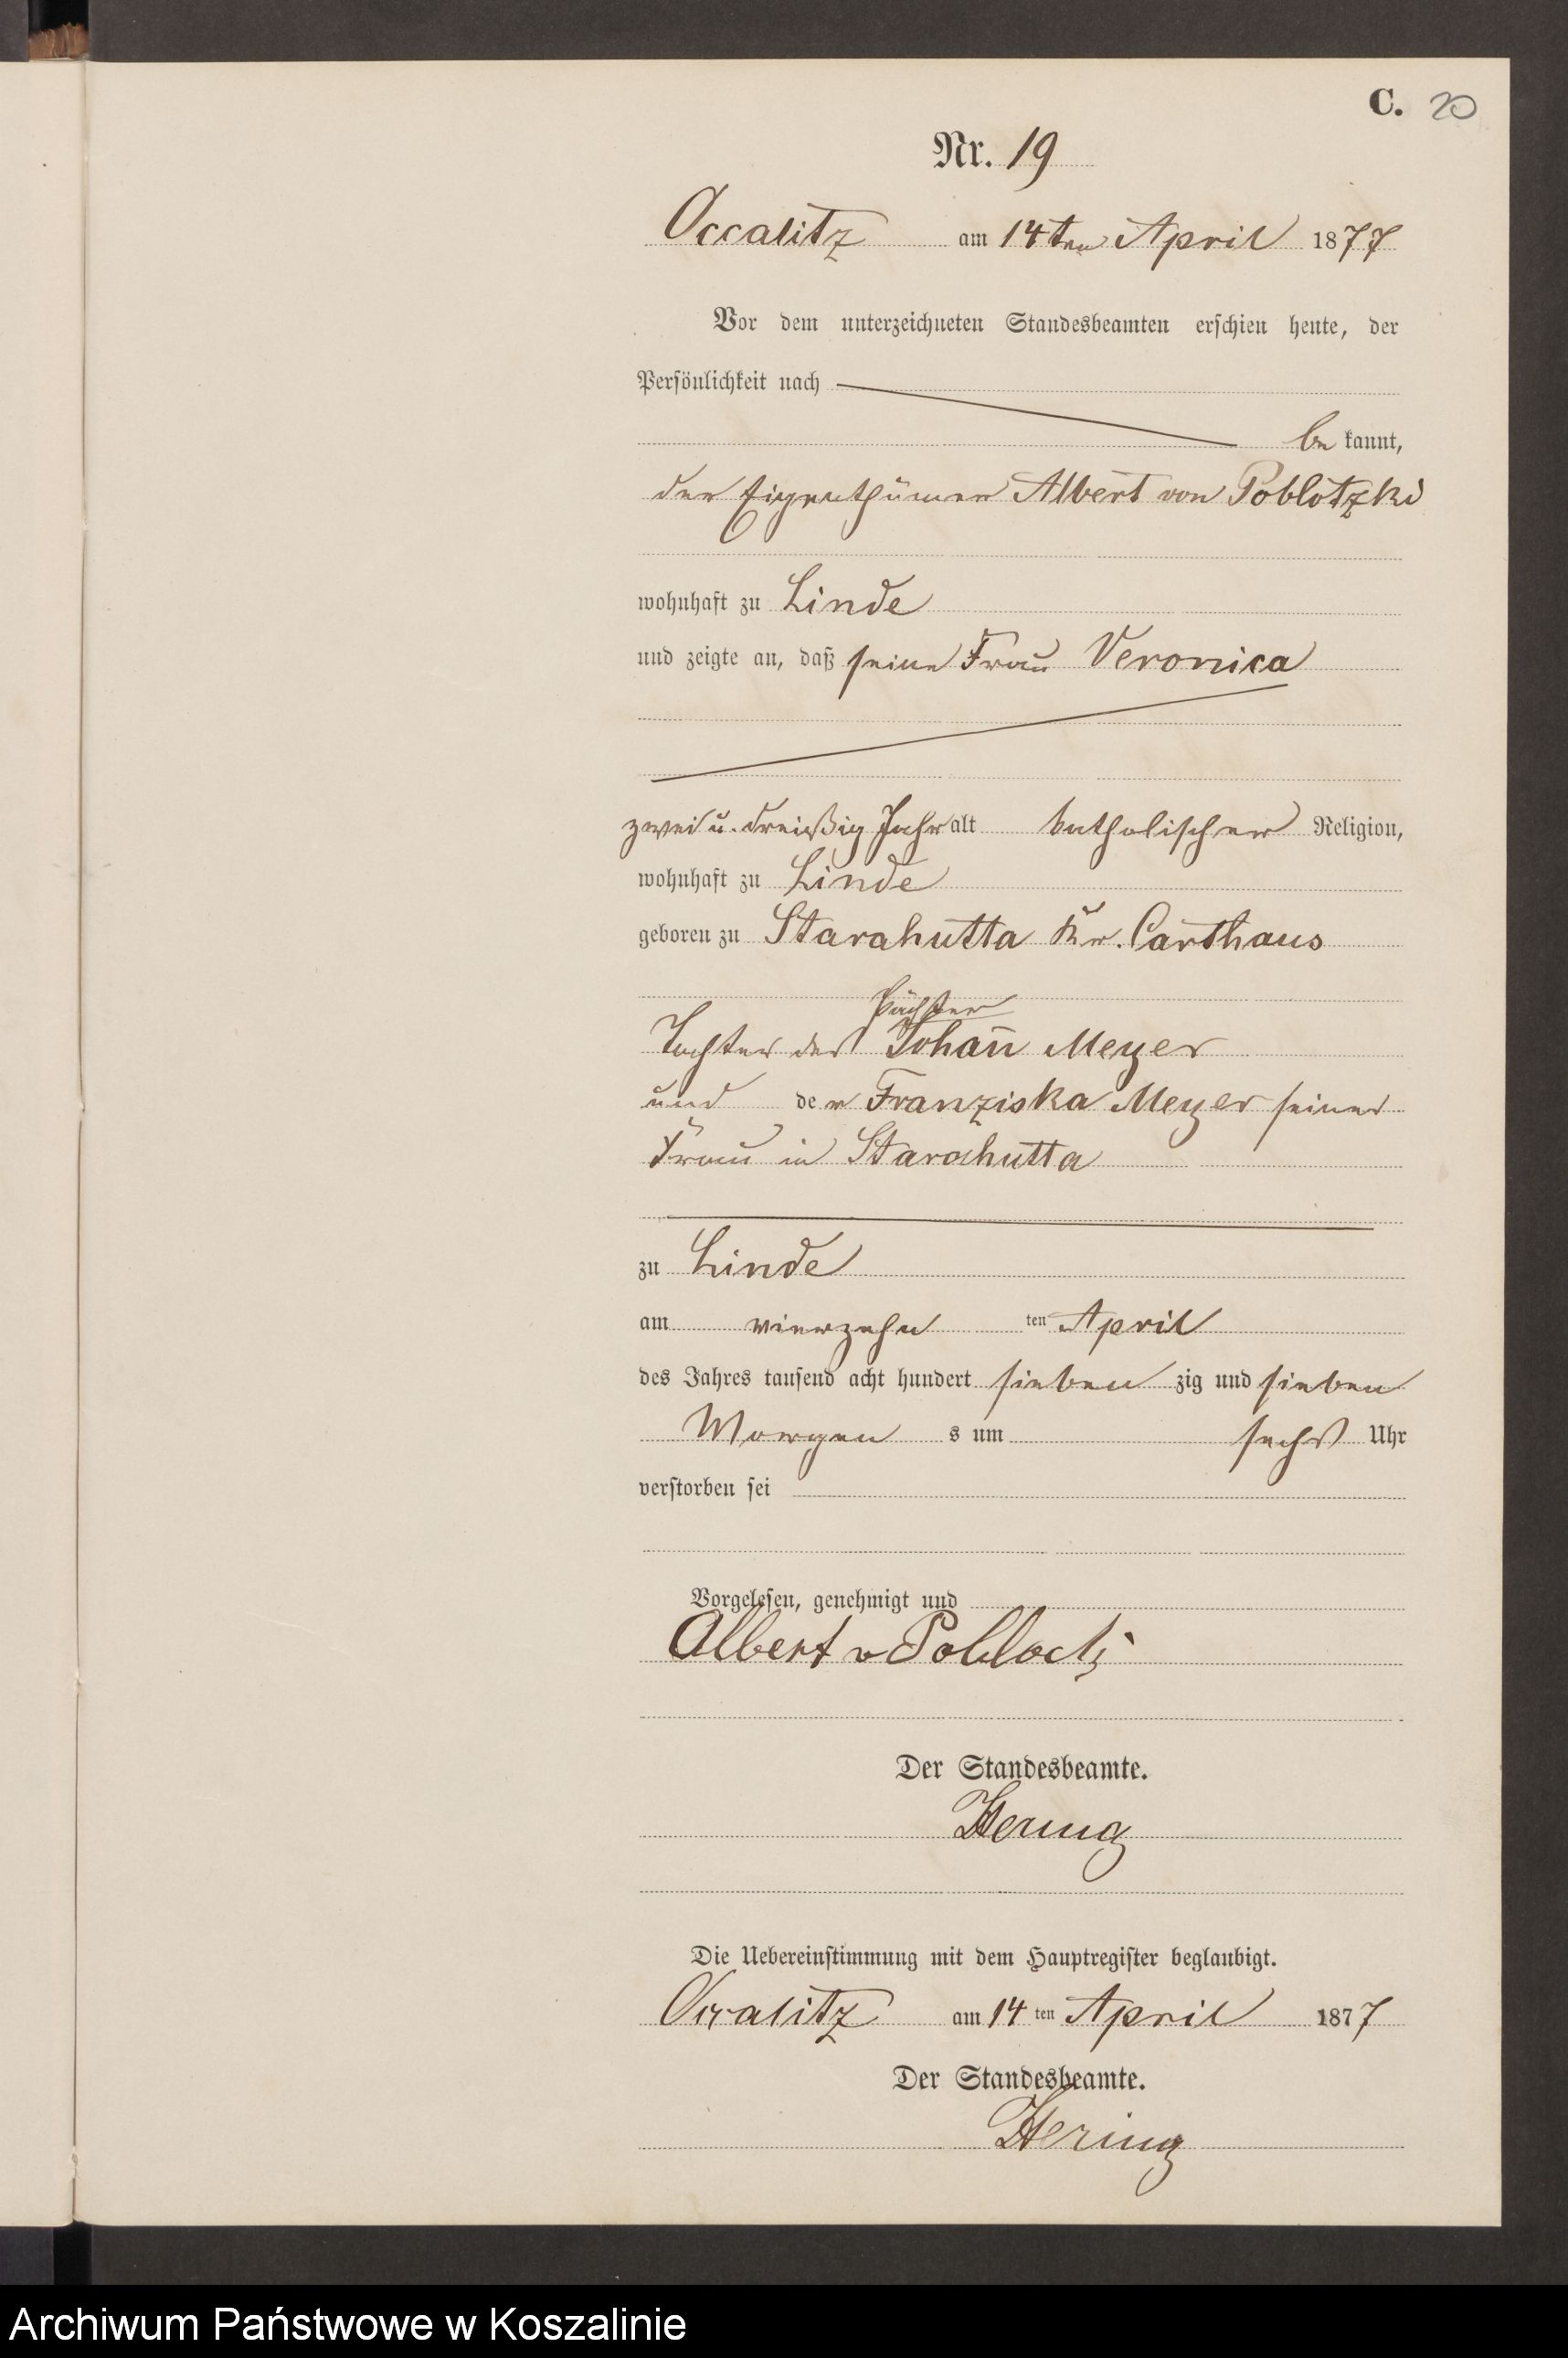 C. 20
Nr. 19
Occalitz am 14ten April 1877
Vor dem unterzeichneten Standesbeamten erschien heute, der
Persönlichkeit nach
be kannt,
der Eigenthümer Albert von Poblotzki
wohnhaft zu Linde
und zeigte an, daß seine Frau Veronica
zwei u. dreißig Jahr alt katholischer Religion,
wohnhaft zu Linde
geboren zu Starahutta Kr. Carthaus
Pächter
Tochter des Johan̄ Meyer
und der Franziska Meyer seiner
Frau in Starahutta
zu Linde
am vierzehn ten April
des Jahres tausend acht hundert sieben zig und sieben
Morgen s um sechs Uhr
verstorben sei
Vorgelesen, genehmigt und
Albert v Poblocki
Der Standesbeamte.
Hering
Die Uebereinstimmung mit dem Hauptregister beglaubigt.
Occalitz am 14 ten April 1877
Der Standesbeamte.
Hering
Archiwum Państwowe w Koszalinie